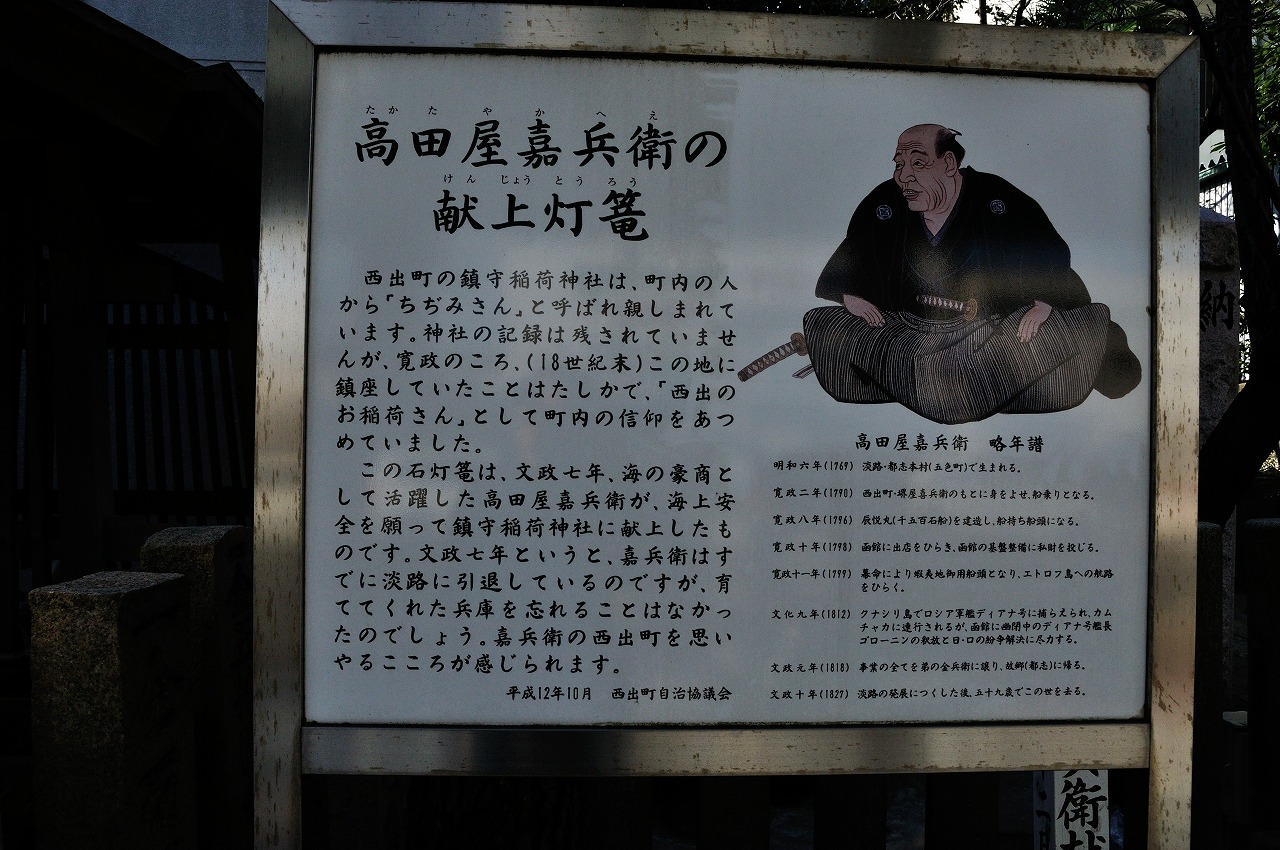 たかたやかへえ
高田屋嘉兵衛の
けんじょうとうろう
献上灯篭
西出町の鎮守稲荷神社は、町内の人
から「ちぢみさん」と呼ばれ親しまれて
います。神社の記録は残されていませ
んが、寛政のころ、(18世紀末)この地に
鎮座していたことはたしかで、「西出の
お稲荷さん」として町内の信仰をあつ
めていました。
この石灯篭は、文政七年、海の豪商と
して活躍した高田屋嘉兵衛が、海上安
全を願って鎮守稲荷神社に献上したも
のです。文政七年というと、嘉兵衛はす
でに淡路に引退しているのですが、育
ててくれた兵庫を忘れることはなかっ
たのでしょう。嘉兵衛の西出町を思い
やるこころが感じられます。
平成12年10月 西出町自治協議会
高田屋嘉兵衛 略年譜
明和六年(1769) 淡路・都志本村(五色町)で生まれる。
寛政二年(1790) 西出町・堺屋喜兵衛のもとに身をよせ、船乗りとなる。
寛政八年(1796) 辰悦丸(千五百石船)を建造し、船持ち船頭になる。
寛政十年(1798) 函館に出店をひらき、函館の基盤整備に私財を投じる。
寛政十一年(1799) 幕命により蝦夷地御用船頭となり、エトロフ島への航路
をひらく。
文化九年(1812) クナシリ島でロシア軍艦ディアナ号に捕らえられ、カム
チャカに連行されるが、函館に幽閉中のディアナ号艦長
ゴローニンの釈放と日・ロの紛争解決に尽力する。
文政元年(1818) 事業の全てを弟の金兵衛に譲り、故郷(都志)に帰る。
文政十年(1827) 淡路の発展につくした後、五十九歳でこの世を去る。
納
兵衛献